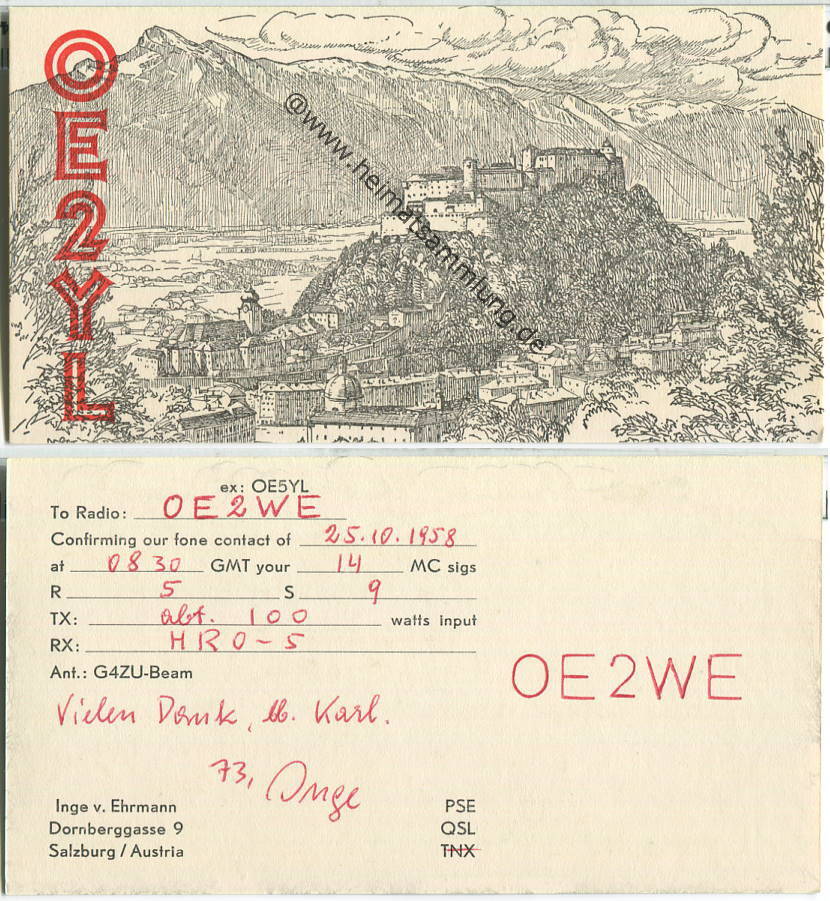 OE2YL
@www.heimatsammlung.de
ex: OE5YL
To Radio: OE2WE
Confirming our fone contact of 25.10.1958
at 0830 GMT your 14 MC sigs
R 5 S 9
TX: abt. 100 watts input
RX: HRO-5
Ant.: G4ZU-Beam
OE2WE
Vielen Dank, lb. Karl.
73, Inge
Inge v. Ehrmann PSE
Dornberggasse 9 QSL
Salzburg / Austria TNX